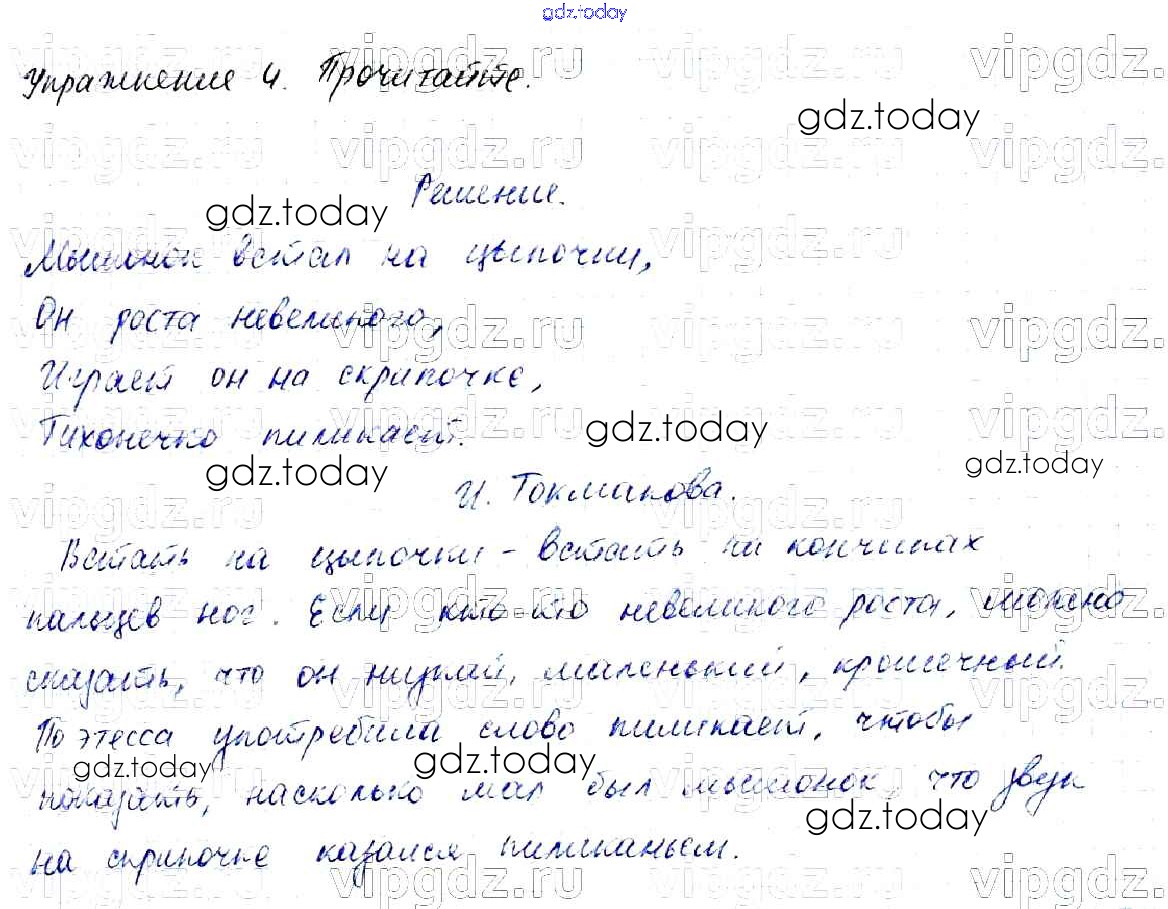 gdz.today
Упражнение 4. Прочитайте.
gdz.today
Решение.
gdz.today
Мышонок встал на цыпочки,
Он роста невеликого,
Играет он на скрипочке,
Тихонечко пиликает.
gdz.today
gdz.today
gdz.today
И. Токмакова.
Встать на цыпочки - встать на кончиках
пальцев ног. Если кто-то невеликого роста, можно
сказать, что он низкий, маленький, крошечный.
Поэтесса употребила слово пиликает, чтобы
gdz.today
gdz.today
показать, насколько мал был мышонок, что звук
gdz.today
на скрипочке казался пиликаньем.
vipgdz.ru